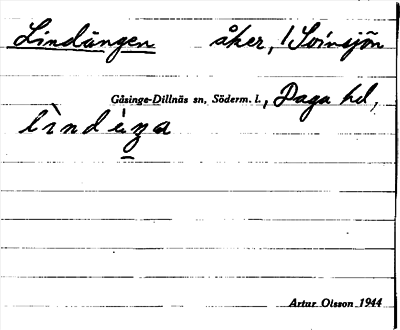 Lindängen åker, 1 Svinsjön
Gåsinge-Dillnäs sn, Söderm. l., Daga hd,
Artur Olsson 1944